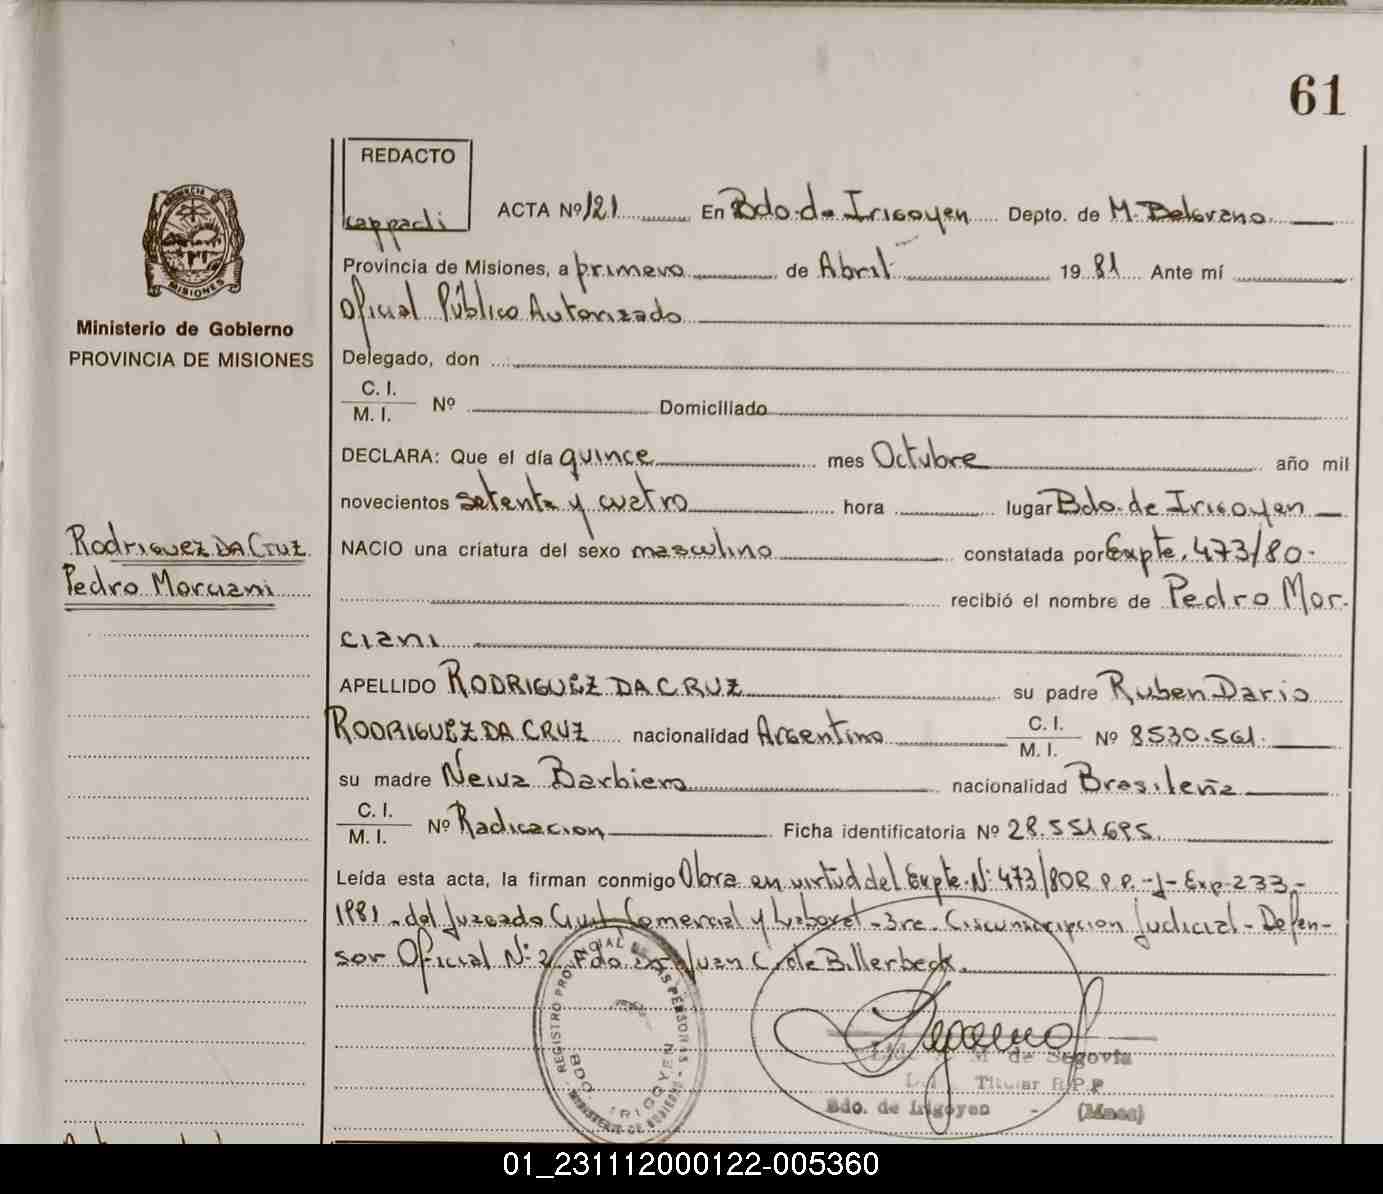 61
REDACTO
cappadi
ACTA Nº 121 En Bdo. de Irigoyen Depto. de M. Belgrano
Provincia de Misiones, a primero de Abril 1981 Ante mí
Oficial Público Autorizado
Ministerio de Gobierno
PROVINCIA DE MISIONES
Delegado, don
C. I.
M. I.
Nº Domiciliado
DECLARA: Que el día quince mes Octubre año mil
novecientos setenta y cuatro hora lugar Bdo. de Irigoyen
Rodriguez DA Cruz
Pedro Morciani
NACIO una criatura del sexo masculino constatada por Expte. 473/80.
recibió el nombre de Pedro Mor-
ciani
APELLIDO RODRIGUEZ DA CRUZ su padre Ruben Dario
RODRIGUEZ DA CRUZ nacionalidad Argentino C. I. M. I. Nº 8530.561.
su madre Neiva Barbiero nacionalidad Brasileña
C. I. M. I. Nº Radicacion Ficha identificatoria Nº 28.551.695.
Leída esta acta, la firman conmigo Obra en virtud del Expte. Nº 473/80 R.P.P. -J- Exp. 233-
1981 - del Juzgado Civil Comercial y Laboral - 3ra. Circunscripcion Judicial - Defen-
sor Oficial Nº 2 Fdo. Dr. Juan C. de Billerbeck.
REGISTRO PROVINCIAL DE LAS PERSONAS
BDO. IRIGOYEN
MINISTERIO DE GOBIERNO
M. de Segovia
Titular R.P.P
Bdo. de Irigoyen - (Mnes)
01_231112000122-005360